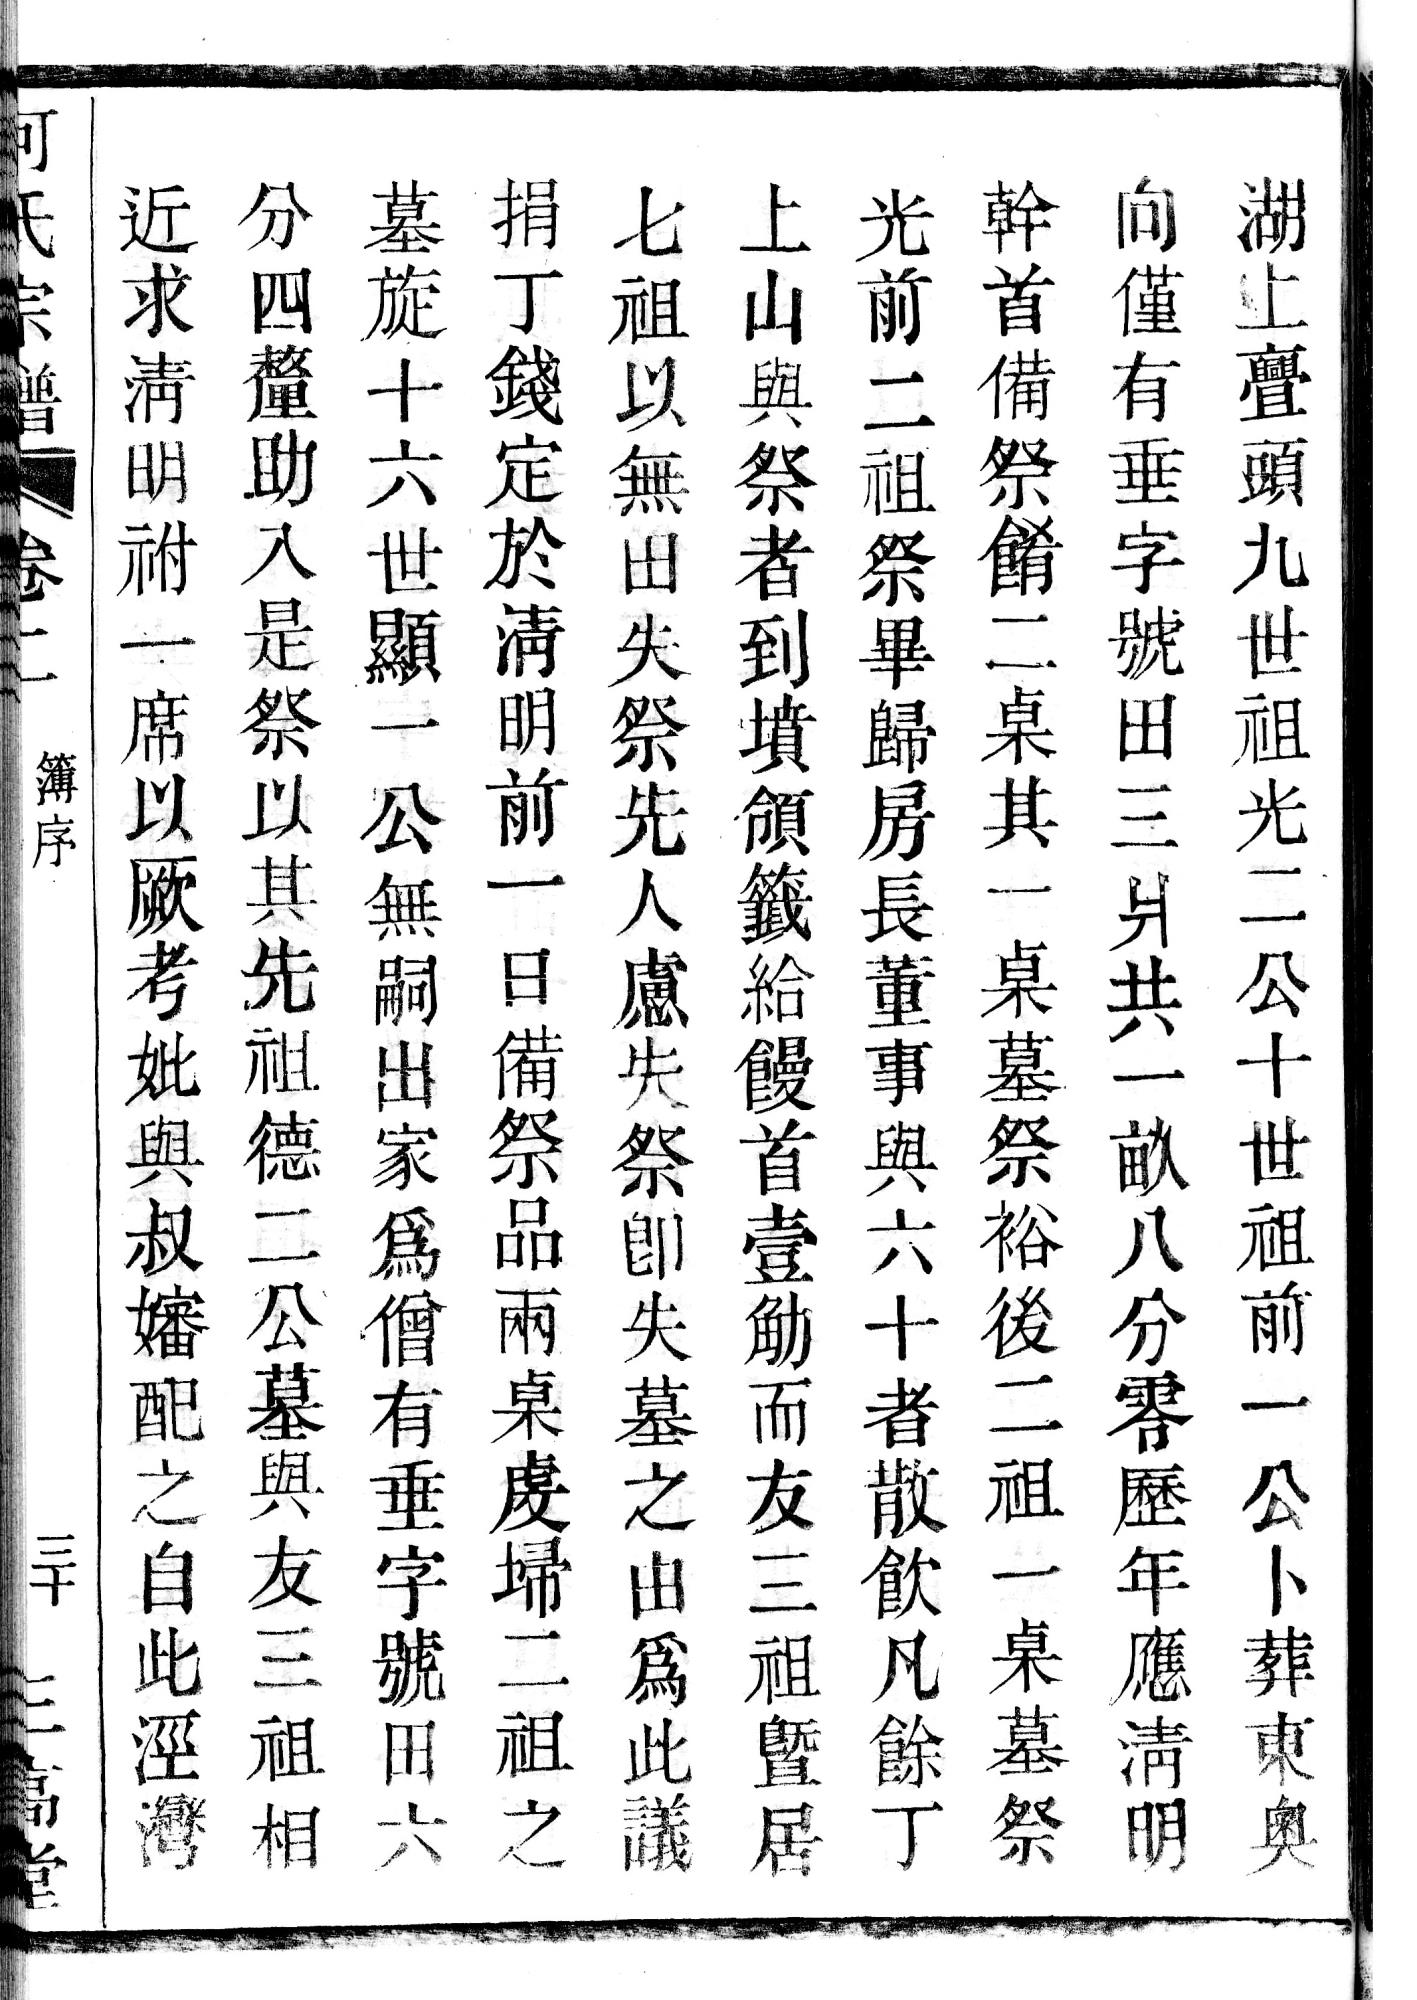 湖上亹頭九世祖光二公十世祖前一公卜葬東奥
向僅有垂字號田三爿共一畝八分零歷年應淸明
幹首備祭餚二桌其一桌墓祭裕後二祖一桌墓祭
光前二祖祭畢歸房長董事與六十者散飲凡餘丁
上山與祭者到墳領籤給饅首壹觔而友三祖曁居
七祖以無出失祭先人慮失祭卽失墓之由爲此議
捐丁錢定於淸明前一日備祭品兩桌虔埽二祖之
墓旋十六世顯一公無嗣出家爲僧有垂字號田六
分四釐助入是祭以其先祖德二公墓與友三祖相
近求淸明祔一席以厥考妣與叔嬸配之自此涇灣
何氏宗譜 卷二 簿序 三十 三高堂